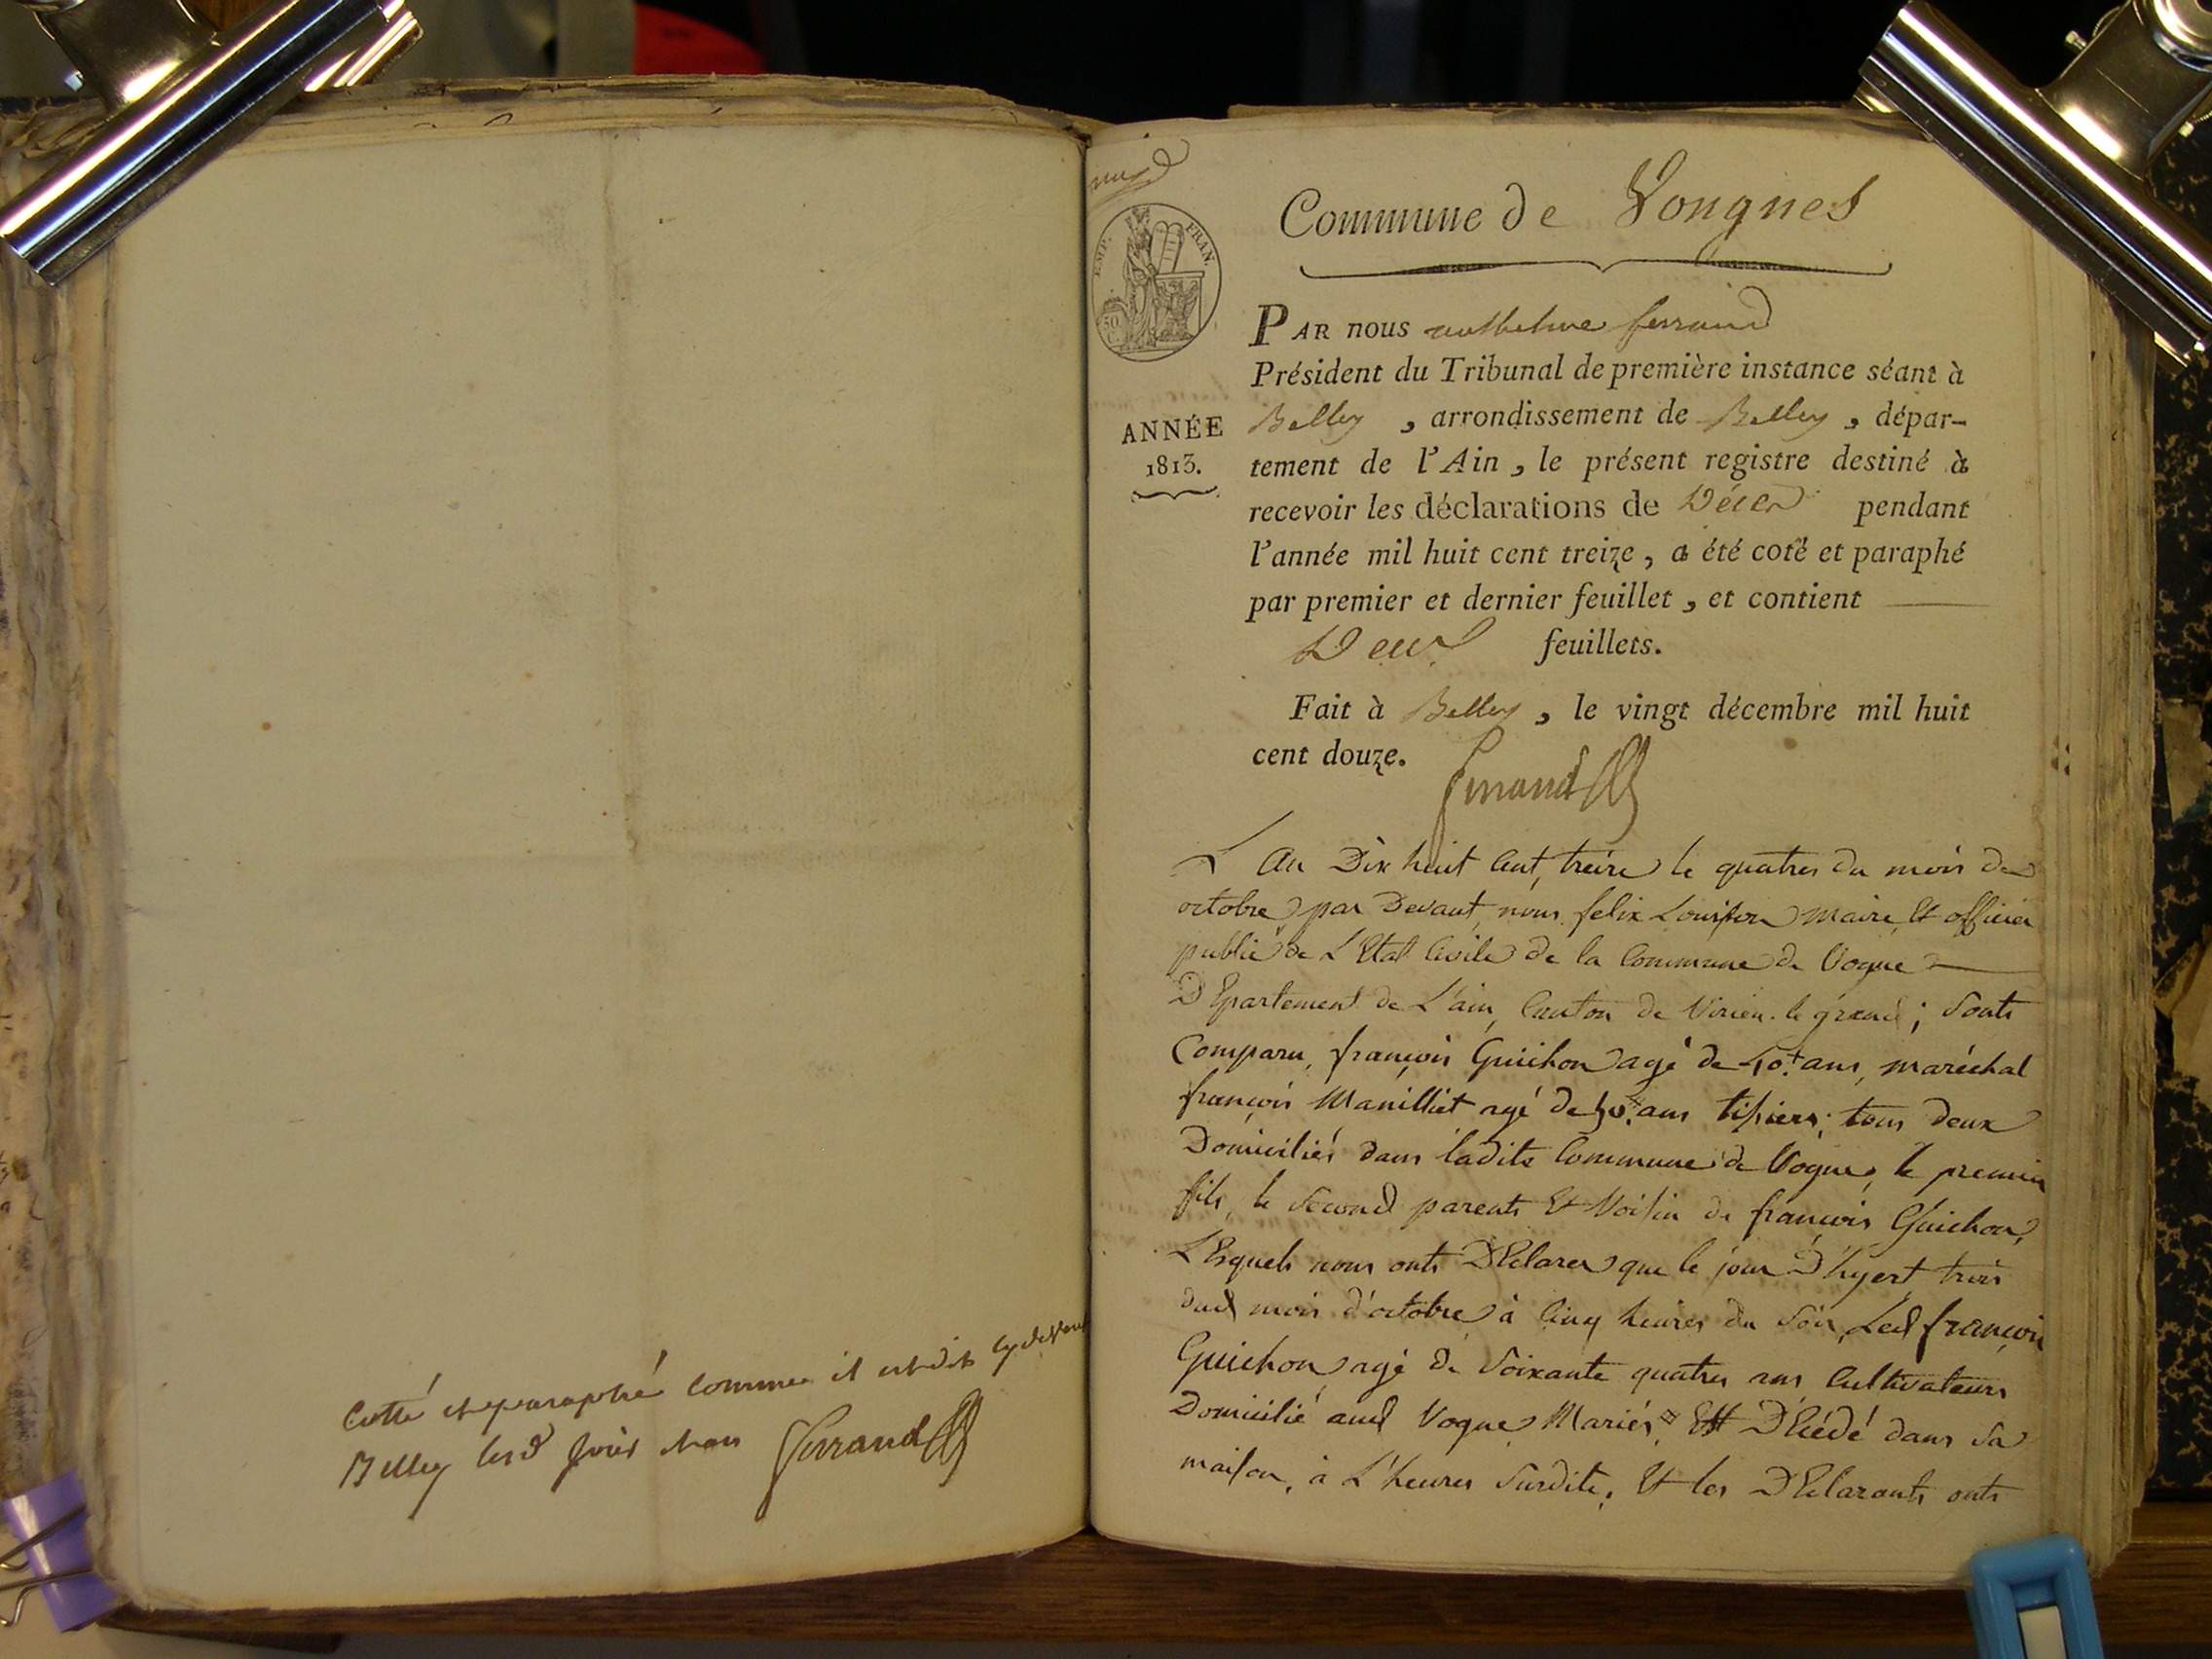 Cotté et paraphé comme il est dit cy devant
Belley lesd jour et an Ferrand
Commune de Vongnes
EMP. FRAN.
50
C.
ANNÉE
1813.
PAR nous anthelme ferrand
Président du Tribunal de première instance séant à
Belley , arrondissement de Belley , dépar-
tement de l'Ain , le présent registre destiné à
recevoir les déclarations de Décès pendant
l'année mil huit cent treize , a été coté et paraphé
par premier et dernier feuillet , et contient
Deux feuillets.
Fait à Belley , le vingt décembre mil huit
cent douze.
Ferrand
L'An Dix huit Cent, treize le quatres du mois de
octobre par Devant, nous felix Louison maire, Et officier
public de L'Etat Civile de la Commune de Vogne
DEpartement de L'ain, Canton de Virieu. le grand ; Sonts
Comparu, françois Guichon agé de 40.ans, maréchal
françois Manilliet agé de 50.ans tisiers; tous deux
Domiciliés dans ladite Commune de Vogne, le premier
fils, le Second parents Et Voisin de françois Guichon,
LEsquels nous onts DEclarer que le jour D'hyert trois
dud mois d'octobre à Cinq heures du Soir, Led françois
Guichon agé de Soixante quatres ans Cultivateurs
Domicilié aud Vogne Mariés, Est DEcédé dans Sa
maison, à L'heures Surdite, Et les DEclarants onts